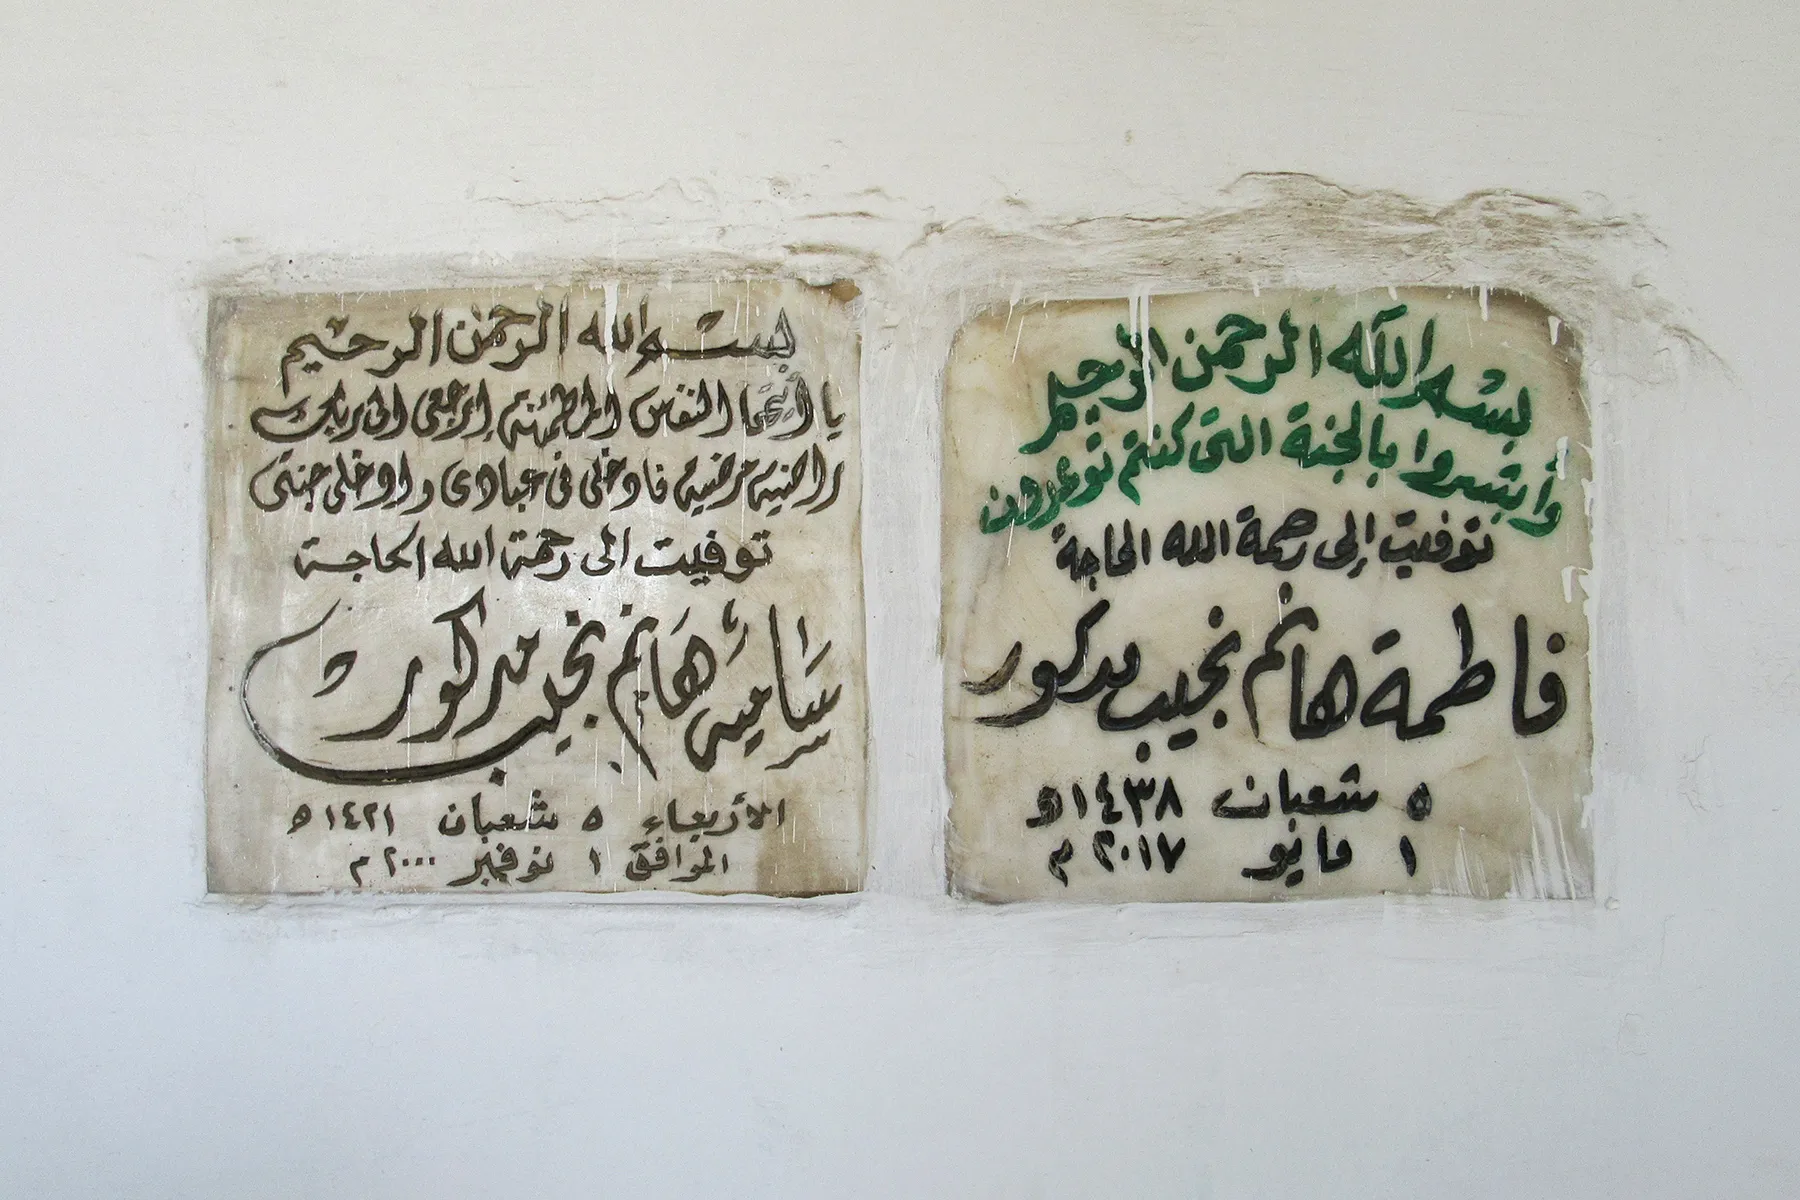 بسم الله الرحمن الرحيم
يا أيتها النفس المطمئنة إرجعى الى ربك
راضيه مرضيه فادخلى فى عبادى وادخلى جنتى
توفيت الى رحمة الله الحاجة
سامية هانم نجيب مدكور
الأربعاء ٥ شعبان ١٤٢١ ه
الموافق ١ نوفمبر ٢٠٠٠ م
بسم الله الرحمن الرحيم
وأبشروا بالجنة التى كنتم توعدون
توفيت إلى رحمة الله الحاجة
فاطمة هانم نجيب مدكور
٥ شعبان ١٤٣٨ ه
١ مايو ٢٠١٧ م